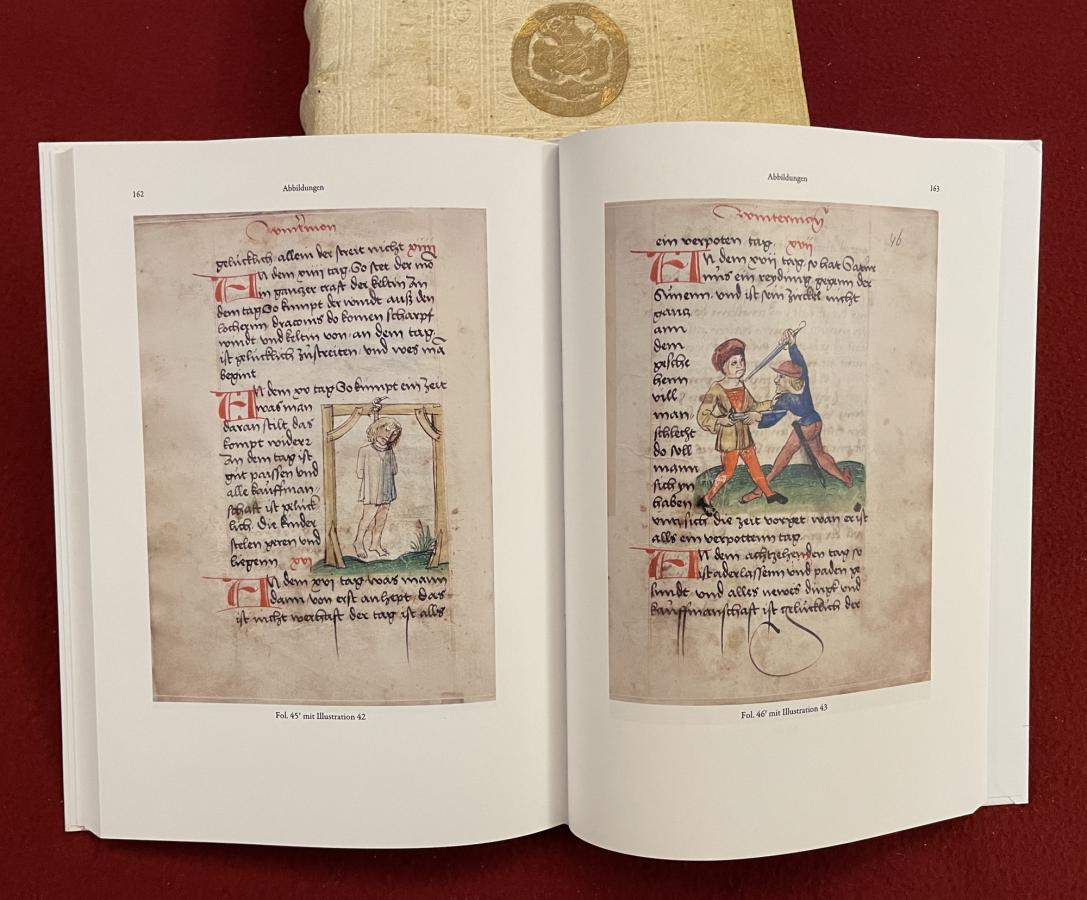 162
Abbildungen
wintermon
gelücklich allein der streit nicht xiiij
An dem xiiij tag So stet der mō
in gantzer craft der keltin Zu
dem tag So kumpt der windt auß den
lochernn draconis do komen scharpf
windt vnd keltin von an dem tag
ist gelücklich zustreiten vnd wes mā
begint
An dem xv tag So kumpt ein zeit
was man
daran stilt das
kompt widerz
Zu dem tag ist
gut paissen vnd
alle kauffman
schaft ist gelück
lich die kinder
stelen geren vnd
liegenn xvi
An dem xvi tag was mann
dann von erst anhept das
ist nicht werhaft der tag ist alls
Fol. 45v mit Illustration 42
Abbildungen
163
wintermon
46
ein verpoten tag xvij
An dem xvij tag so hat Satur
nus ein reydung gegenn der
Sunenn vnd ist sein zirckel nicht
gantz
ann
dem
gesche
henn
vill
man
schlecht
do soll
mann
sich yn
haben
vntz sich die zeit vorget wan er ist
alls ein verpottenn tag
An dem achtzehenden tag so
ist aderlassenn vnd paden ge
sundt vnd alles newes dingk vnd
kauffmanschaft ist gelücklich der
Fol. 46r mit Illustration 43